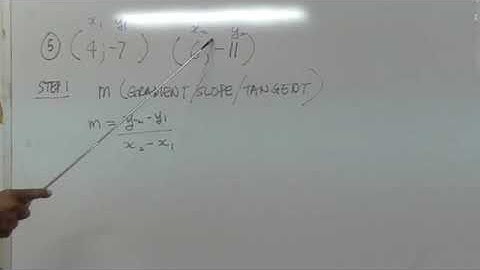 x₁ y₁ x₂ y₂
⑤ (4; -7) (6; -11)
STEP 1 m (GRADIENT/SLOPE/TANGENT)
m = y₂ - y₁
x₂ - x₁